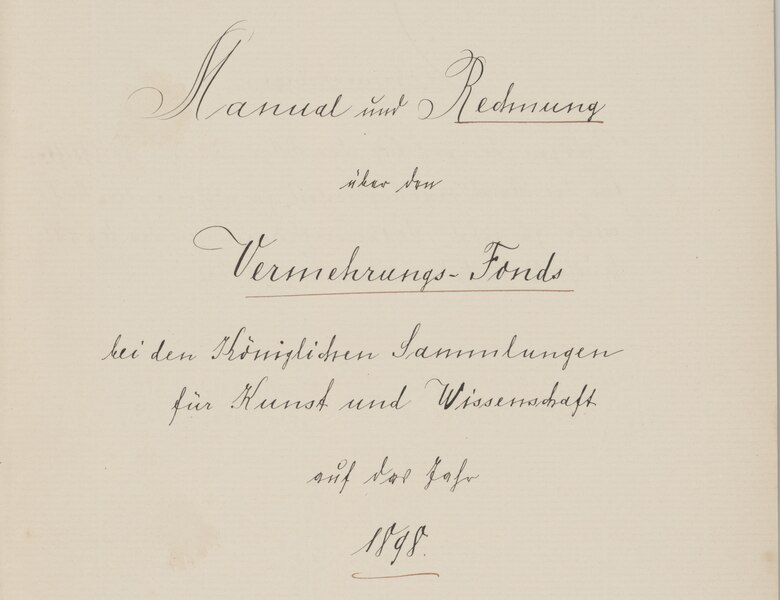 Manual und Rechnung
über den
Vermehrungs-Fonds
bei den Königlichen Sammlungen
für Kunst und Wissenschaft
auf das Jahr
1898.